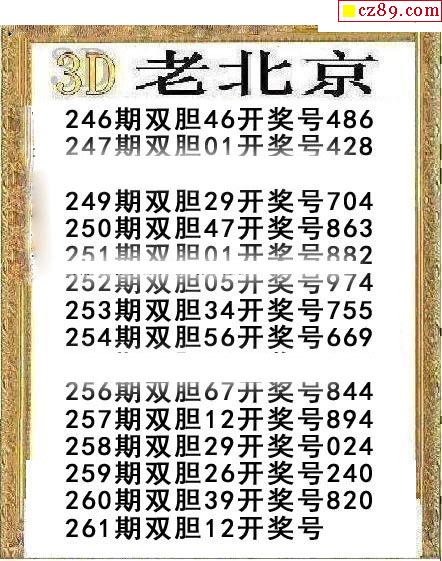 cz89.com
3D 老北京
246期双胆46开奖号486
247期双胆01开奖号428
249期双胆29开奖号704
250期双胆47开奖号863
251期双胆01开奖号882
252期双胆05开奖号974
253期双胆34开奖号755
254期双胆56开奖号669
256期双胆67开奖号844
257期双胆12开奖号894
258期双胆29开奖号024
259期双胆26开奖号240
260期双胆39开奖号820
261期双胆12开奖号